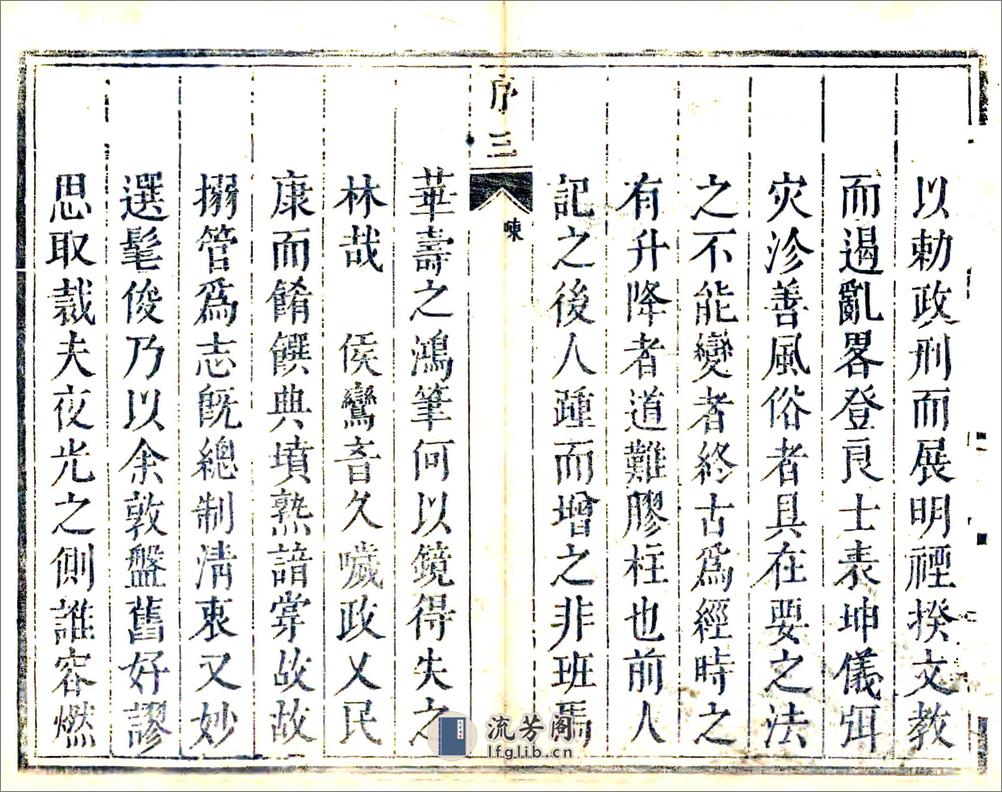 以勅政刑而展明禋揆文教
而遏亂畧登良士表坤儀弭
灾沴善風俗者具在要之法
之不能變者終古爲經時之
有升降者道難膠柱也前人
記之後人踵而增之非班馬
序三
崠
華壽之鴻筆何以鏡得失之
林哉　侯鸞音久噦政乂民
康而餚饌典墳熟諳掌故故
搦管爲志旣總制淸衷又妙
選髦俊乃以余敦盤舊好謬
思取裁夫夜光之側誰容燃
流芳阁
lfglib.cn